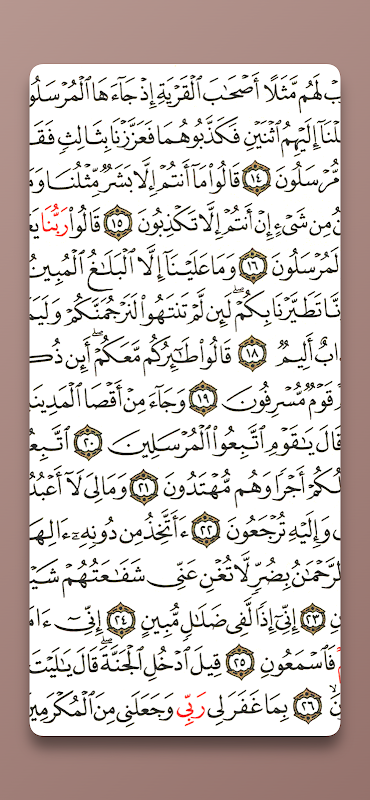 لَهُم مَّثَلًا أَصْحَٰبَ ٱلْقَرْيَةِ إِذْ جَآءَهَا
إِلَيْهِمُ ٱثْنَيْنِ فَكَذَّبُوهُمَا فَعَزَّزْنَا بِثَالِثٍ
مُّرْسَلُونَ ١٤ قَالُوا۟ مَآ أَنتُمْ إِلَّا بَشَرٌ مِّثْلُنَا
مِن شَىْءٍ إِنْ أَنتُمْ إِلَّا تَكْذِبُونَ ١٥ قَالُوا۟ رَبُّنَا
لَمُرْسَلُونَ ١٦ وَمَا عَلَيْنَآ إِلَّا ٱلْبَلَٰغُ ٱلْمُبِينُ
تَطَيَّرْنَا بِكُمْ ۖ لَئِن لَّمْ تَنتَهُوا۟ لَنَرْجُمَنَّكُمْ
أَلِيمٌ ١٨ قَالُوا۟ طَٰٓئِرُكُم مَّعَكُمْ ۚ أَئِن
قَوْمٌ مُّسْرِفُونَ ١٩ وَجَآءَ مِنْ أَقْصَا
قَالَ يَٰقَوْمِ ٱتَّبِعُوا۟ ٱلْمُرْسَلِينَ ٢٠
أَجْرًا وَهُم مُّهْتَدُونَ ٢١ وَمَا لِىَ لَآ
وَإِلَيْهِ تُرْجَعُونَ ٢٢ ءَأَتَّخِذُ مِن دُونِهِۦٓ
ٱلرَّحْمَٰنُ بِضُرٍّ لَّا تُغْنِ عَنِّى شَفَٰعَتُهُمْ
٢٣ إِنِّىٓ إِذًا لَّفِى ضَلَٰلٍ مُّبِينٍ ٢٤ إِنِّىٓ
فَٱسْمَعُونِ ٢٥ قِيلَ ٱدْخُلِ ٱلْجَنَّةَ ۖ قَالَ يَٰلَيْتَ
٢٦ بِمَا غَفَرَ لِى رَبِّى وَجَعَلَنِى مِنَ ٱلْمُكْرَمِينَ